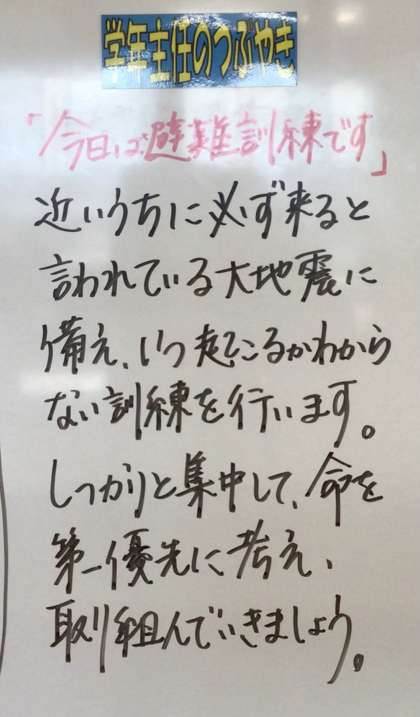 学年主任のつぶやき
「今日は避難訓練です」
近いうちに必ず来ると
言われている大地震に
備え、いつ起こるかわから
ない訓練を行います。
しっかりと集中して、命を
第一優先に考え、
取り組んでいきましょう。